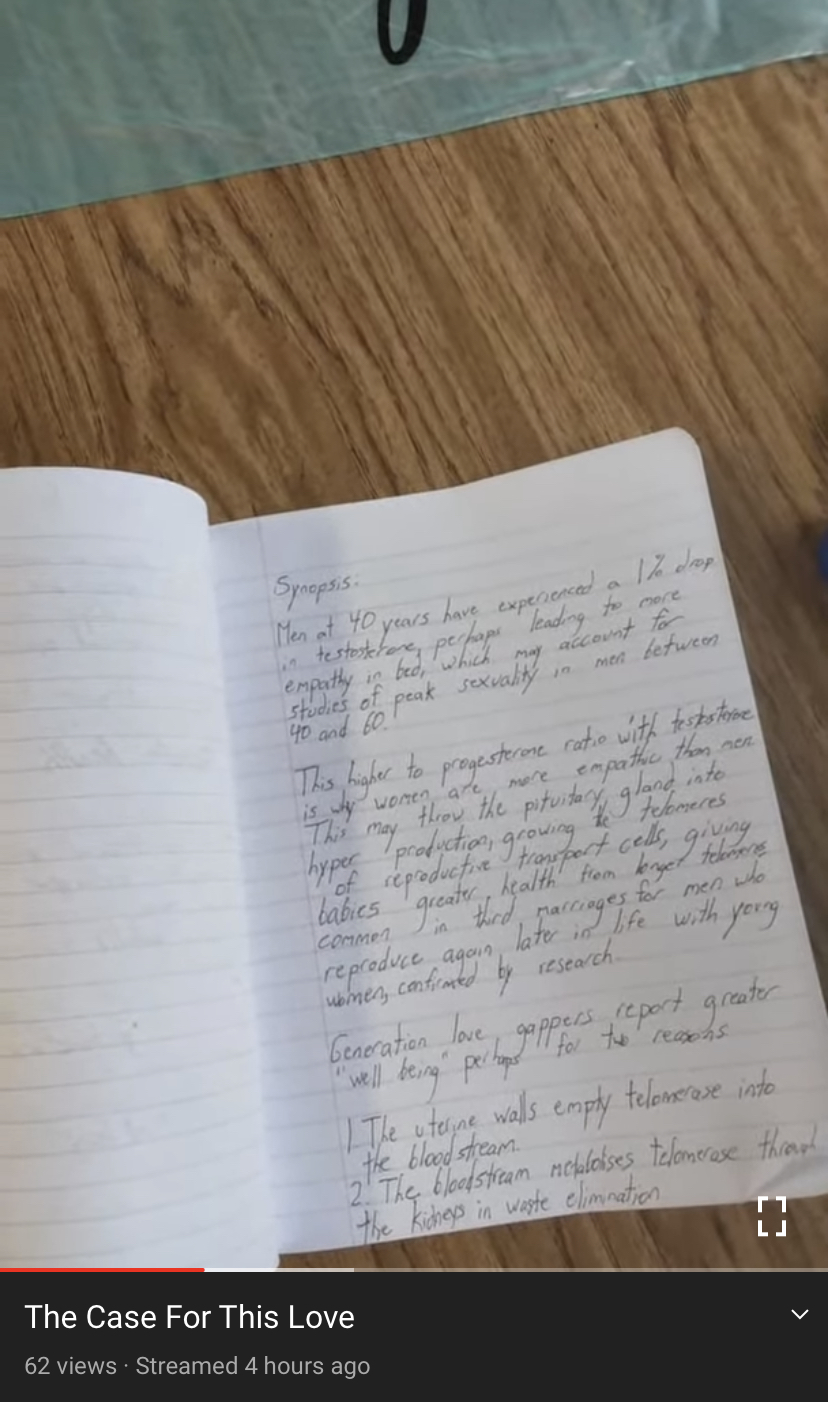 Synopsis:
Men at 40 years have experienced a 1% drop
in testosterone, perhaps leading to more
empathy in bed, which may account for
studies of peak sexuality in men between
40 and 60.
This higher to progesterone ratio with testosterone
is why women are more empathic than men
This may throw the pituitary gland into
hyper production, growing the telomeres
of reproductive transport cells, giving
babies greater health from longer telomeres
common in third marriages for men who
reproduce again later in life with young
women, confirmed by research.
Generation love gappers report greater
"well being" perhaps for two reasons
1. The uterine walls empty telomerase into
the bloodstream.
2. The bloodstream metabolises telomerase
the kidneys in waste elimination
The Case For This Love
62 views · Streamed 4 hours ago